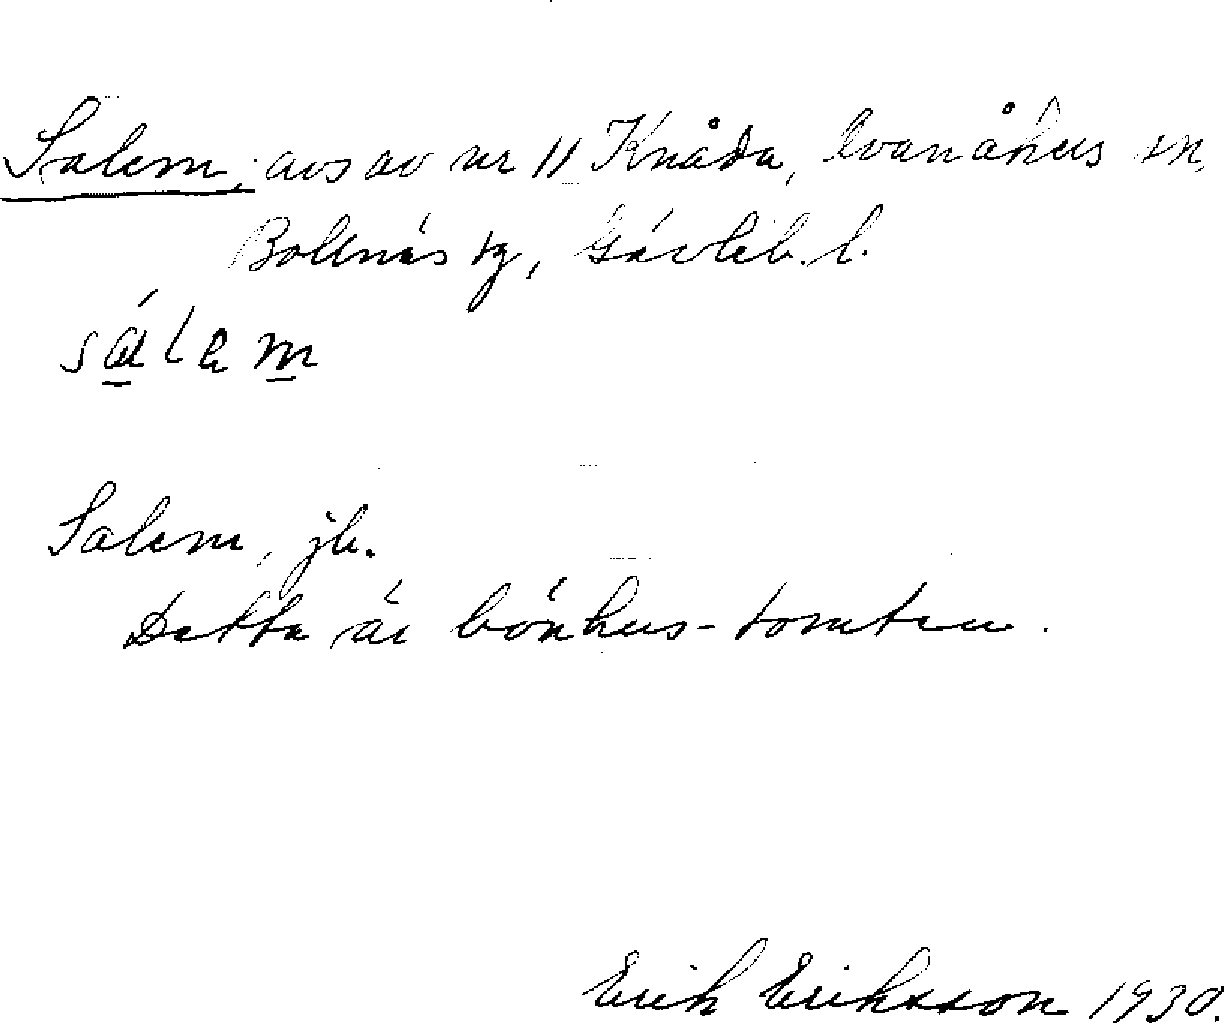 Salem, avs av nr 11 Knåda, Ovanåkers sn,
Bollnäs tg, Gävleb. l.
sálem
Salem, jb.
Detta är bönhus-tomten.
Erik Eriksson 1930.